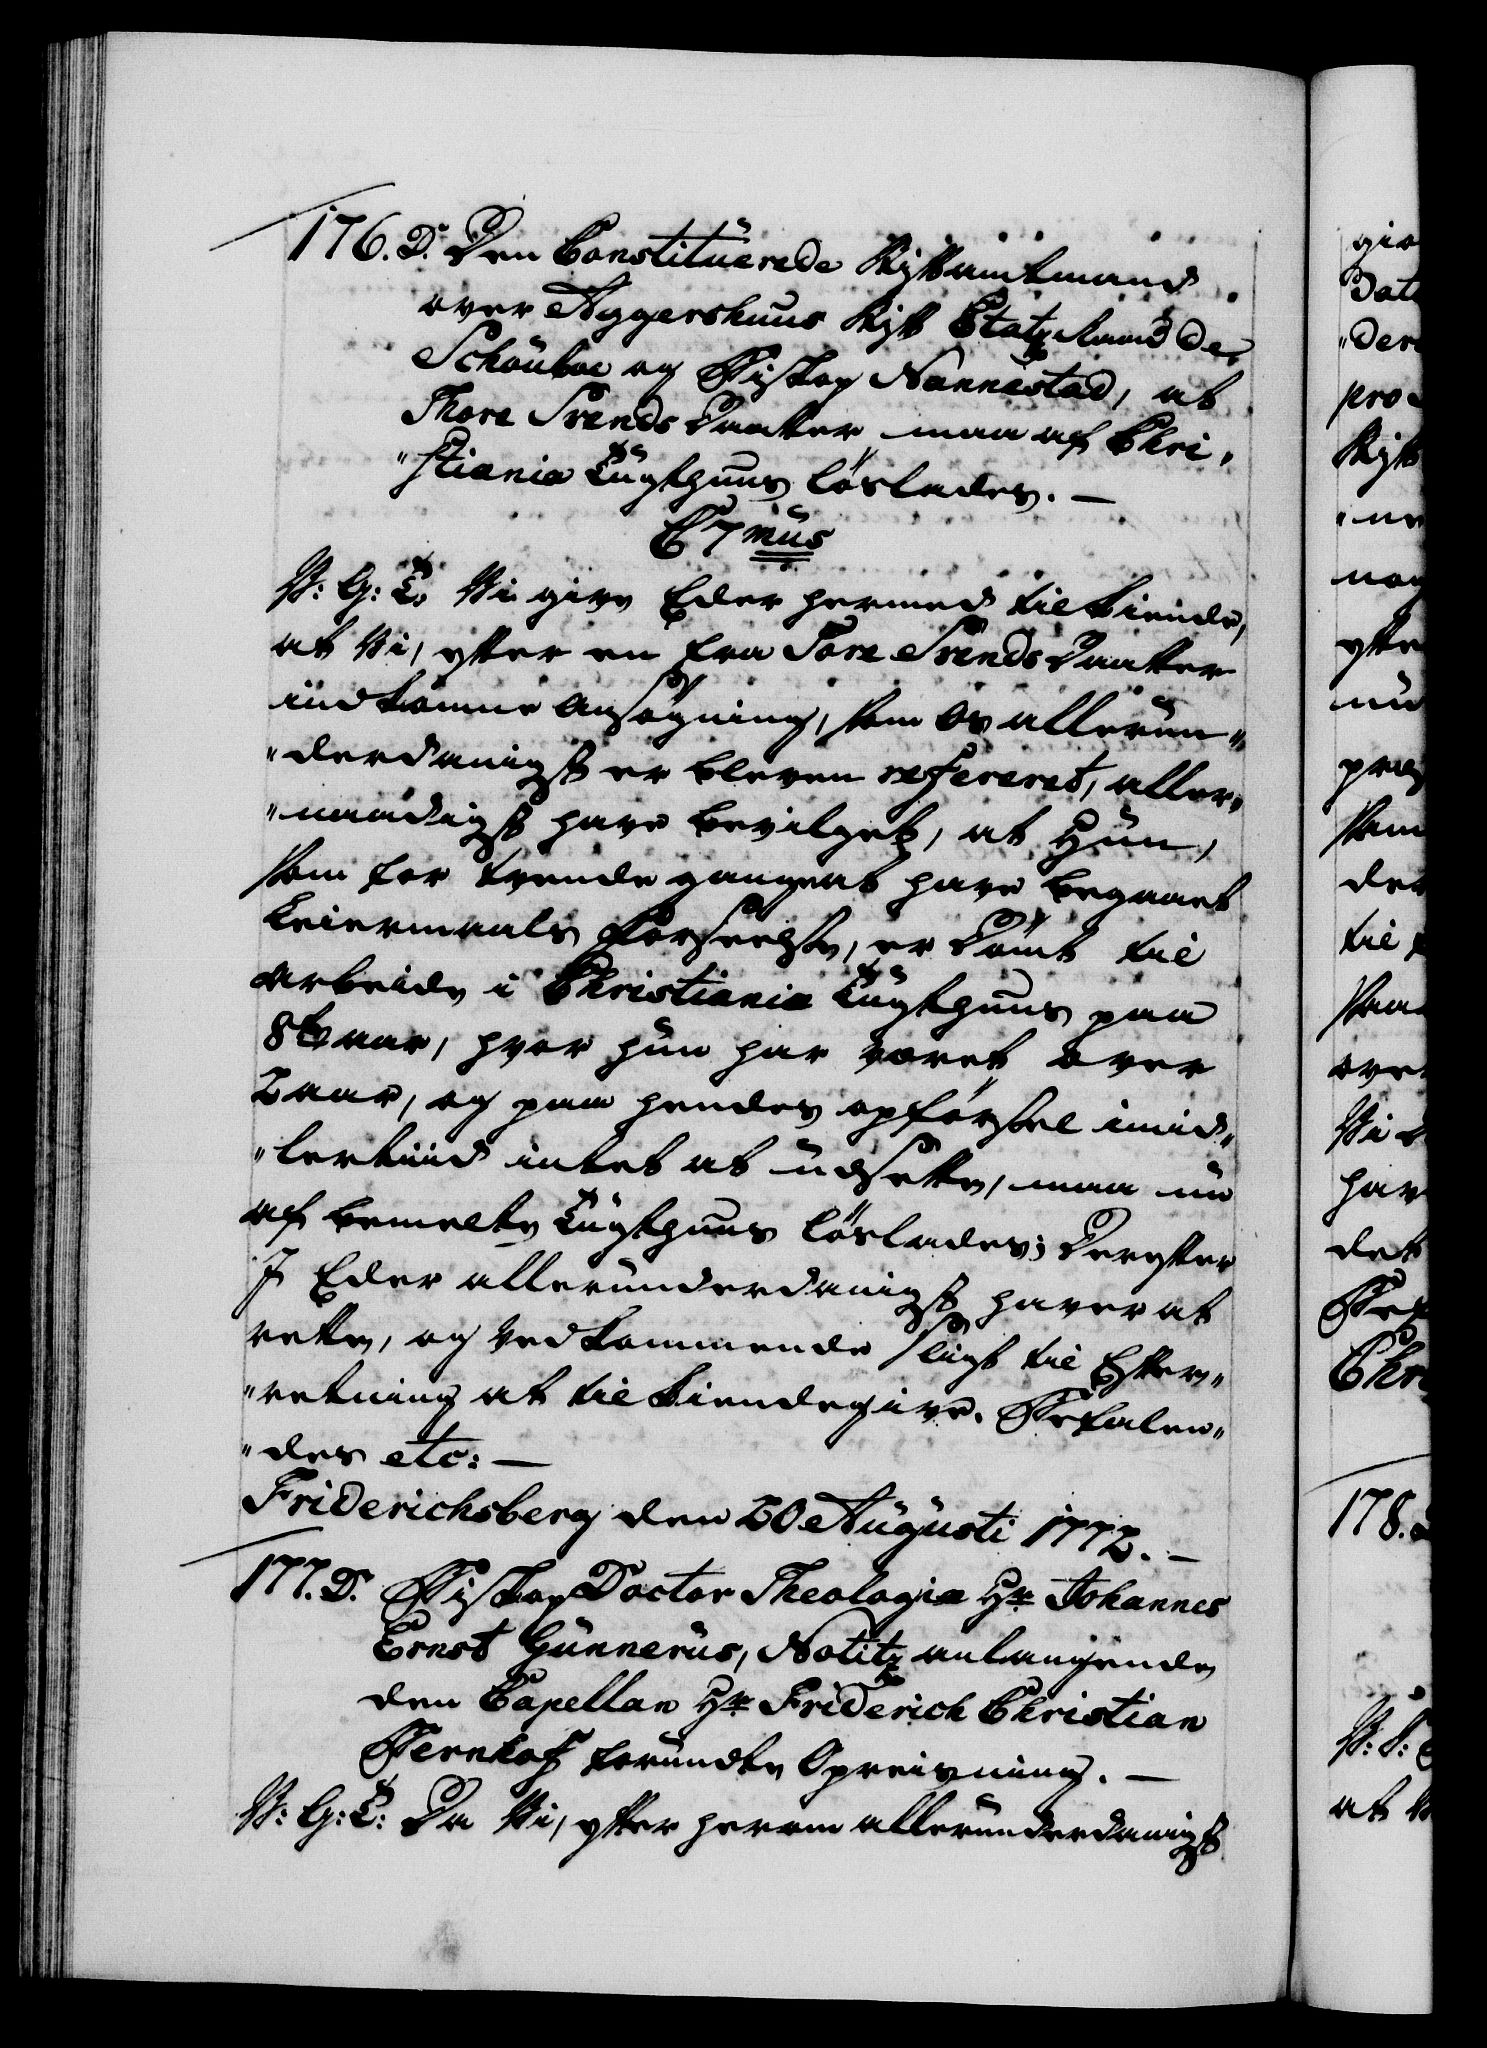 176. D. Den Constituerede Stiftamtmand
over Aggershuus Stift Etatz Raad de
Schouboe og Biskop Nannestad, at
Thore Trends Daatter maa af Chri-
"stiania Tugthuus löslades. —
C 7 mus
V: G: T. Vi give Eder hermed tilkiende,
at Vi, efter en fra Tore Trends Daatter
indkomne Ansögning, som Os allerun-
"derdanigst er bleven refereret, aller-
"naadigst have bevilget, at Hun,
som for trende gangers have begaaet
Leiermaals Forseelse, er dömt til
Arbeide i Christiania Tugthuus paa
8te aar, hvor hun har været over
2 aar, og paa hendes opförsel imid-
"lertiid intet at udsette, maa nu
af bemelte Tugthuus löslades; Derefter
I Eder allerunderdanigst haver at
rette, og Vedkommende sligt til Efter-
"retning at tilkiendegive. Befalen-
"des etc: —
Friderichsberg den 20 Augusti 1772. —
177. D. Biskop Doctor Theologiæ Hr. Johannes
Ernst Gunnerus, Notitz anlangende
den Capellan Hr. Friderich Christian
Bernhof forundte Opreisning. —
V: G: T: Da Vi, efter herom allerunderdanigst
178.